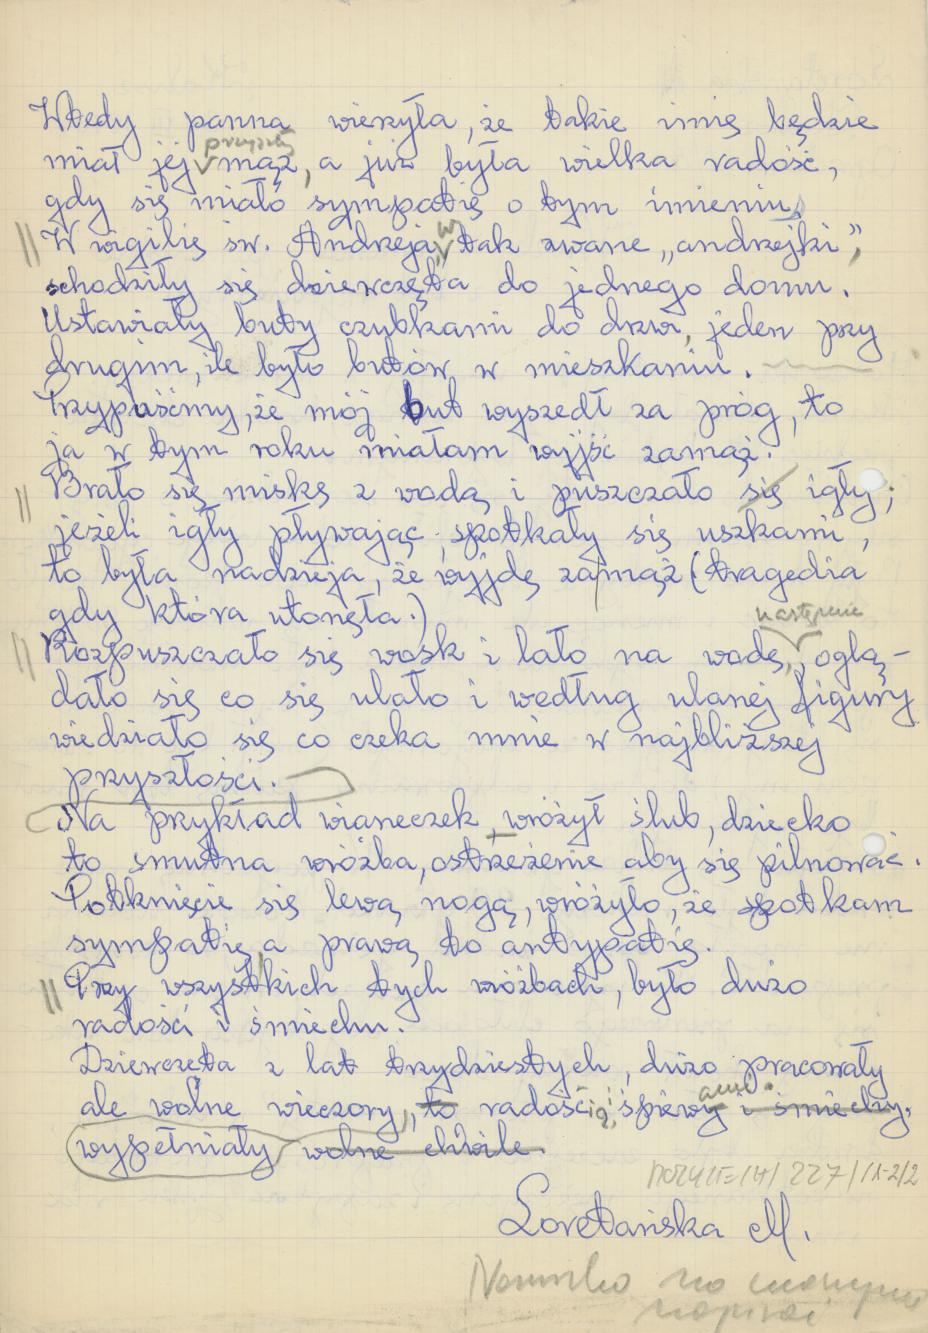 Wtedy panna wierzyła, że takie imię będzie
przyszły
miał jej mąż, a już była wielka radość,
gdy się miało sympatię o tym imieniu.
W wigilię św. Andrzeja, w tak zwane „andrzejki”,
schodziły się dziewczęta do jednego domu.
Ustawiały buty czubkami do drzwi, jeden przy
drugim, ile było butów w mieszkaniu.
Przypuśćmy, że mój but wyszedł za próg, to
ja w tym roku miałam wyjść zamąż.
Brało się miskę z wodą i puszczało się igły;
jeżeli igły pływając, spotkały się uszkami,
to była nadzieja, że wyjdę zamąż (tragedia
gdy która utonęła.)
następnie
Rozpuszczało się wosk i lało na wodę, oglą-
dało się co się ulało i według ulanej figury
wiedziało się co czeka mnie w najbliższej
przyszłości.
Na przykład wianeczek, wróżył ślub, dziecko
to smutna wróżba, ostrzeżenie aby się pilnować.
Potknięcie się lewą nogą, wróżyło, że spotkam
sympatię, a prawą to antypatię.
Przy wszystkich tych wróżbach, było dużo
radości i śmiechu.
Dziewczęta z lat trzydziestych, dużo pracowały
ale wolne wieczory, to radość ią, śpiewy ami. i śmiechy,
wypełniały wolne chwile.
227/
Loretańska M.
Nazwisko na maszynie
napisać